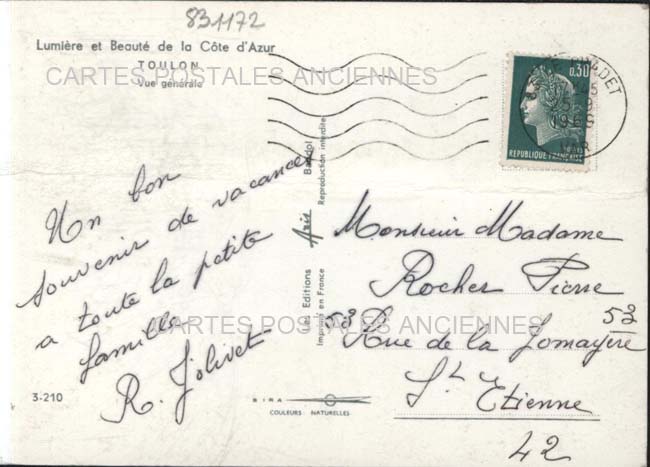 831172
Lumière et Beauté de la Côte d'Azur
TOULON
Vue générale
CARTES POSTALES ANCIENNES
0,30
REPUBLIQUE FRANÇAISE
Un bon
souvenir de vacances
a toute la petite
famille
R. Jolivet
3-210
Les Editions Aris Bandol
Imprimé en France Reproduction interdite
Monsieur Madame
Rocher Pierre
53 Rue de la Jomayère 53
St Etienne
42
CARTES POSTALES ANCIENNES
COULEURS NATURELLES